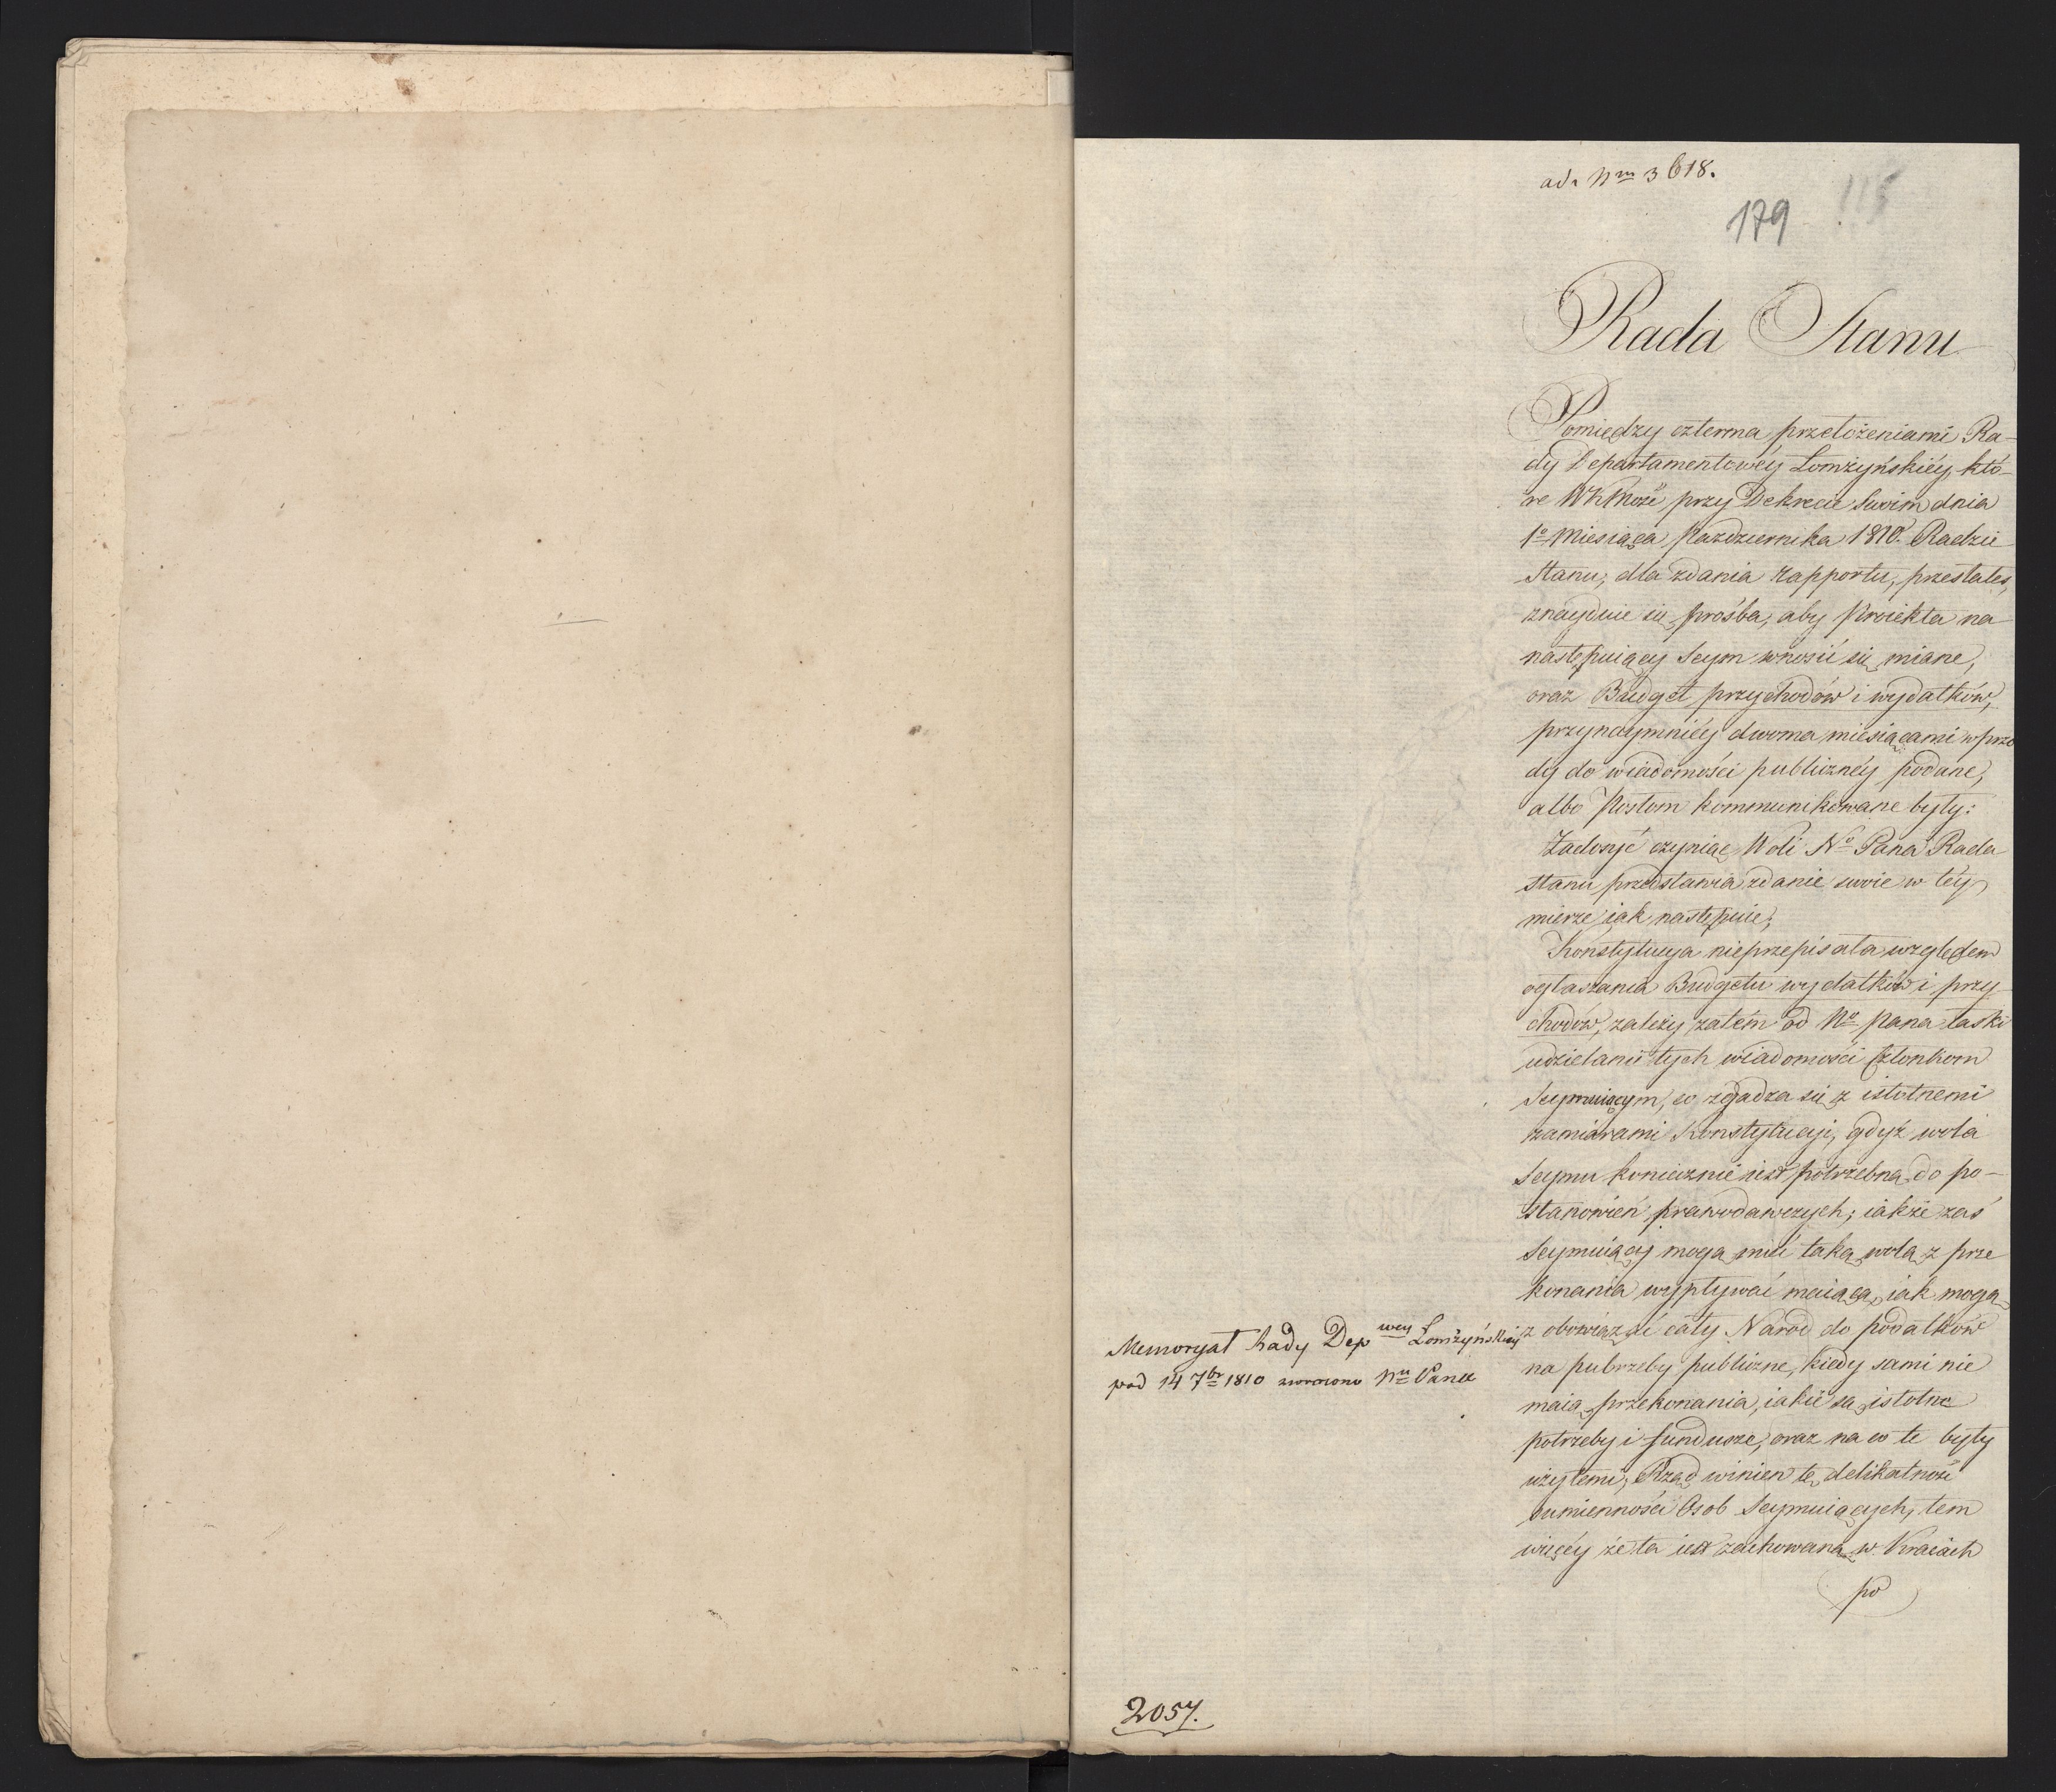 ad. Nm 3618.
179
115
Rada Stanu
Pomiędzy czterma przełożeniami Ra-
dy Departamentowéy Łomżyńskiéy, któ-
re WKMość przy Dekrecie Swoim dnia
1o Miesiąca Pazdziernika 1810. Radzie
Stanu, dla zdania rapportu, przesłałeś,
znayduie się prośba, aby Proiekta na
następuiący Seym wnosić się miane,
oraz Budget przychodów i wydatków,
przynaymniéy dwoma miesiącami wprzó
dy do wiadomości publicznéy podane,
albo Posłom kommunikowane były:
Zadosyć czyniąc Woli No Pana Rada
Stanu przedstawia zdanie swoie w téy
mierze iak następuie;
Konstytucya nieprzepisała względem
ogłaszania Budgetu wydatków i przy-
chodów, zależy zatém od No Pana łaski
udzielanie tych wiadomości Członkom
Seymuiącym, co zgadza się z istotnemi
zamiarami Konstytucyi, gdyż wola
Seymu koniecznie iest potrzebna do po-
stanowień prawodawczych; iakże zaś
Seymuiący mogą mieć taką wolą z prze
konania wypływać maiącą, iak mogą
obowiązać cały Naród do podatków
na potrzeby publiczne, kiedy sami nie
maią przekonania, iakie są istotne
potrzeby i fundusze, oraz na co te były
użytemi; Rząd winien tę delikatność
sumienności Osob Seymuiących, tem
więcéy że ta iest zachowaną w Kraiach
po
Memoryał Rady Dep wey Łomżyńskiey
pod 14 7br 1810 zwrocono Nu Panu
2057.